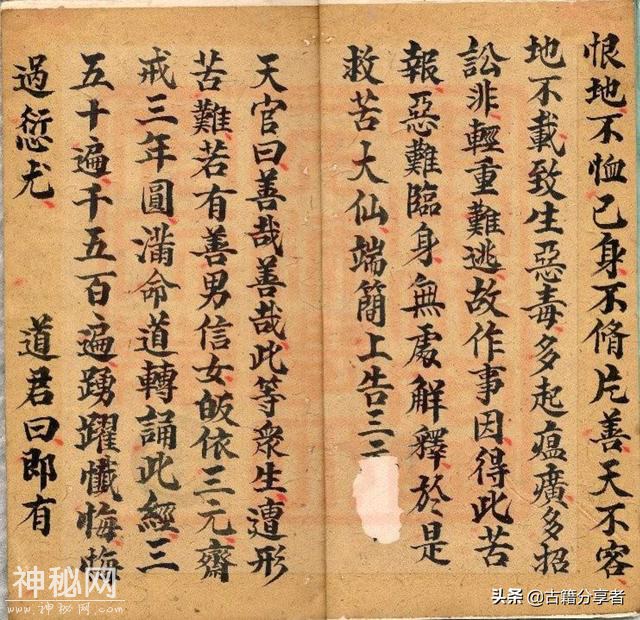 恨地不恤己身不脩片善天不容
地不載致生惡毒多起瘟癀多招
訟非輕重難逃故作事因得此苦
報惡難臨身無處解釋於是
救苦大仙端簡上告三
天官曰善哉善哉此等衆生遭形
苦難若有善男信女皈依三元齋
戒三年圓滿命道轉誦此經三
五十遍千五百遍踴躍懺悔
過愆尤 道君曰即有
神秘网
www.神秘网.com
头条 @古籍分享者